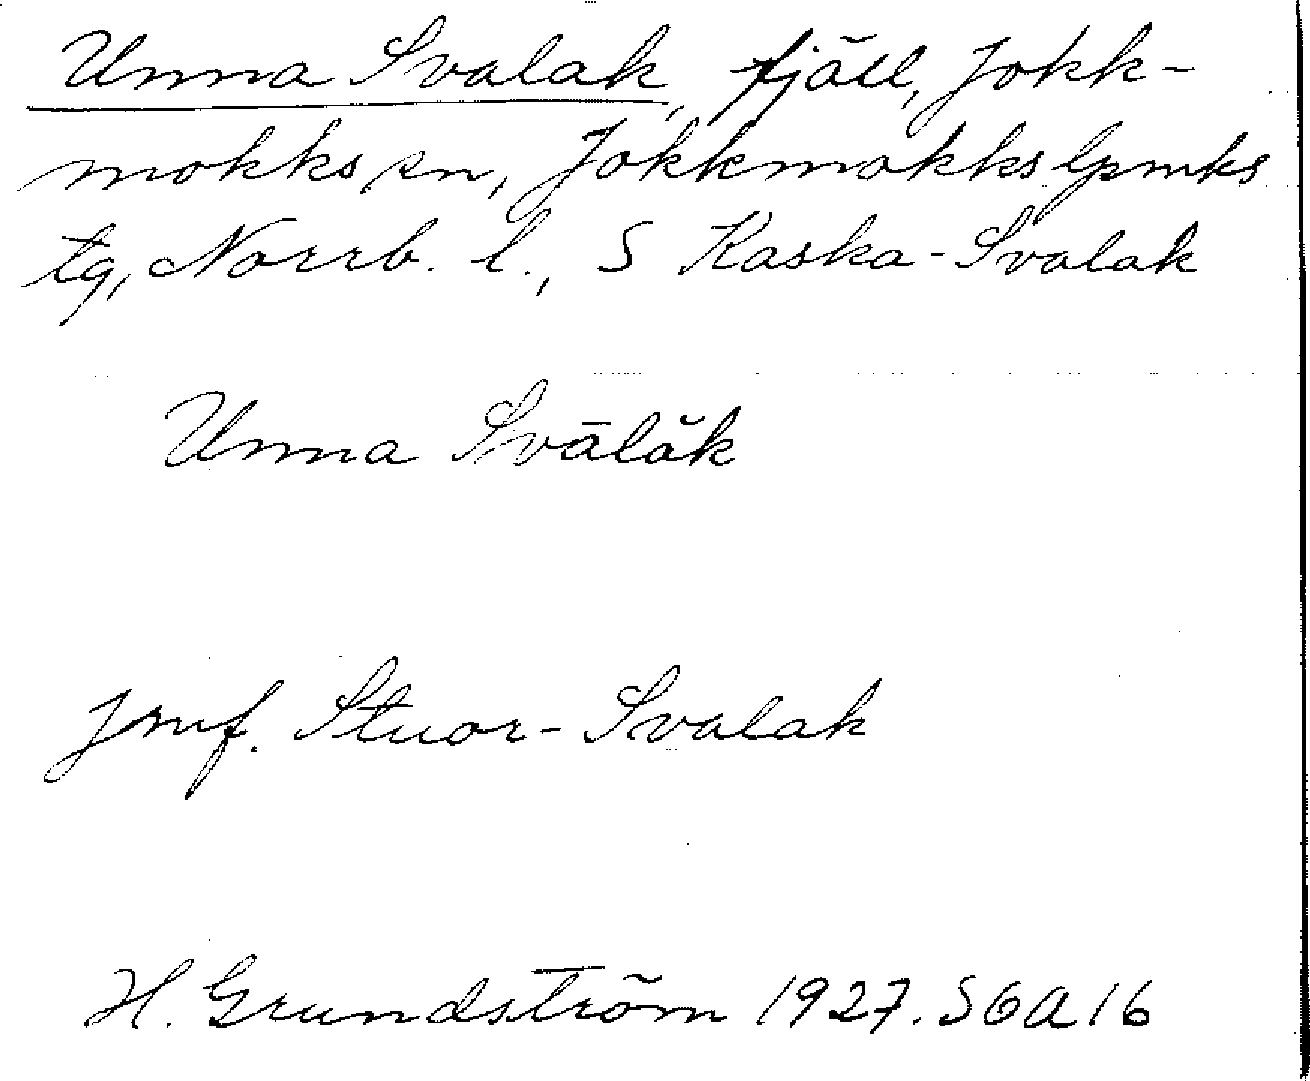 Unna Svalak, fjäll, Jokk-
mokks sn, Jokkmokks lpmks
tg, Norrb. l., S Kaska-Svalak
Unna Svālăk
Jmf. Stuor-Svalak
H. Grundström 1927. SOA 16